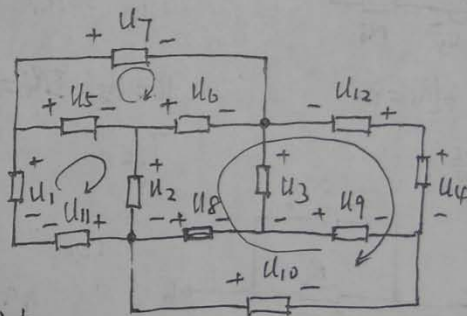 + U7 -
+ U5 - + U6 - - U12 +
+ U1 - + U2 - + U3 - + U4 -
- U11 + + U8 + U9 -
+ U10 -